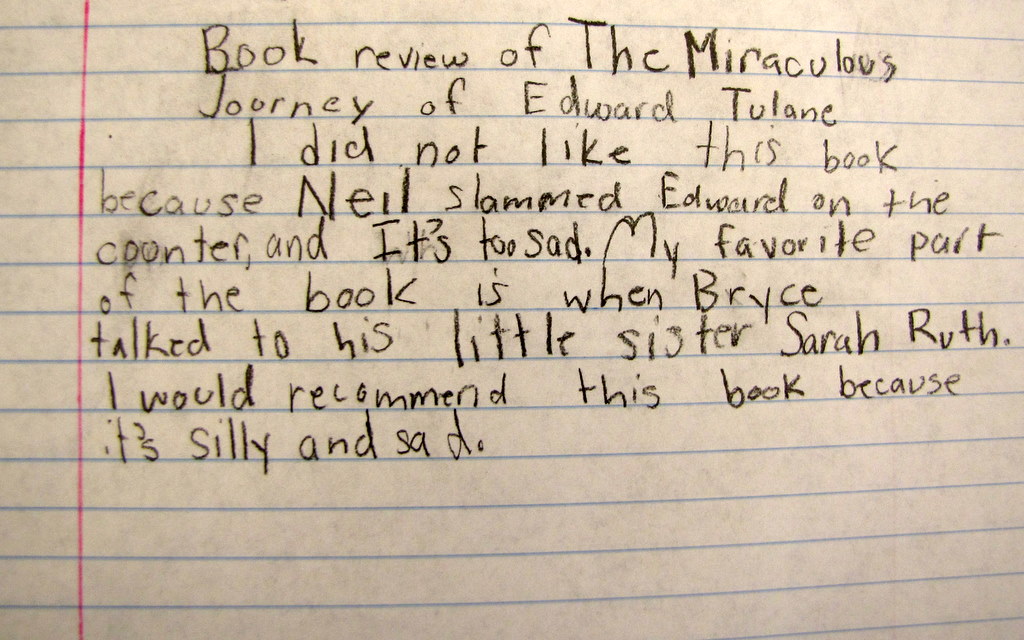 Book review of The Miraculous
Journey of Edward Tulane
I did not like this book
because Neil slammed Edward on the
counter, and It's too sad. My favorite part
of the book is when Bryce
talked to his little sister Sarah Ruth.
I would recommend this book because
it's silly and sad.